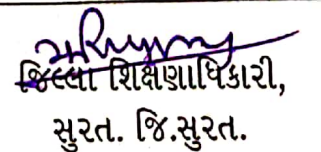 જિલ્લા શિક્ષણાધિકારી,
સુરત. જિ.સુરત.